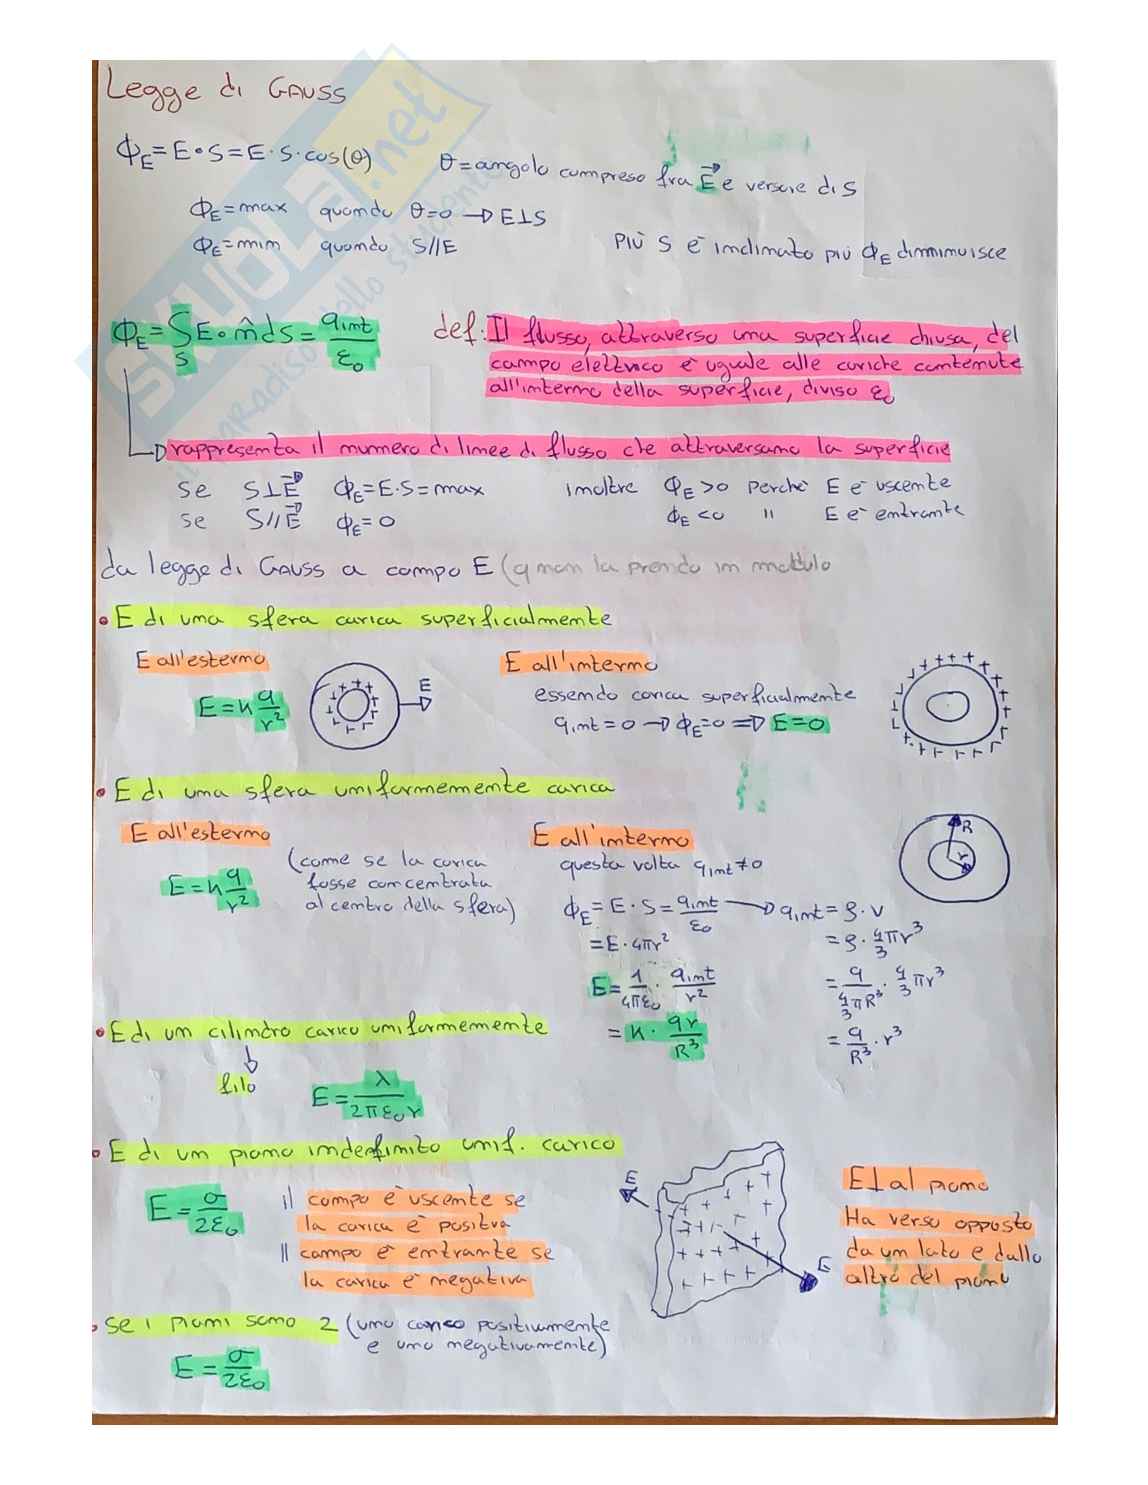 Legge di GAUSS
Φ_E = E • S = E · S · cos(θ)
θ = angolo compreso fra E⃗ e versore di S
Φ_E = max quando θ=0 → E⊥S
Φ_E = min quando S//E
più S è inclinato più Φ_E dimminuisce
Φ_E = ∫_S E • n̂ dS = qint/ε₀
def: Il flusso, attraverso una superficie chiusa, del
campo elettrico è uguale alle cariche contenute
all'interno della superficie, diviso ε₀
→ rappresenta il numero di linee di flusso che attraversano la superficie
se S⊥E⃗ Φ_E = E·S = max
inoltre Φ_E > 0 perchè E è uscente
se S//E⃗ Φ_E = 0
Φ_E < 0 " E è entrante
da legge di GAUSS a campo E (q non la prendo in modulo
• E di una sfera carica superficialmente
E all'esterno
E = k q/r²
E
E all'interno
essendo carica superficialmente
qint = 0 → Φ_E = 0 ⇒ E = 0
• E di una sfera uniformemente carica
E all'esterno
E = k q/r²
(come se la carica
fosse concentrata
al centro della sfera)
E all'interno
questa volta qint ≠ 0
R
r
Φ_E = E · S = qint/ε₀ → qint = ρ · V
= E · 4πr²
= ρ · 4/3 πr³
E = 1/4πε₀ · qint/r²
= q/(4/3 πR³) · 4/3 πr³
= k · qr/R³
= q/R³ · r³
• E di un cilindro carico uniformemente
filo
E = λ/2πε₀r
• E di un piano indefinito unif. carico
E = σ/2ε₀
il campo è uscente se
la carica è positiva
Il campo è entrante se
la carica è negativa
E
E
E⊥al piano
Ha verso opposto
da un lato e dallo
altro del piano
• se i piani sono 2 (uno carico positivamente
e uno negativamente)
E = σ/2ε₀
SKUOLA.net
il paradiso dello studente